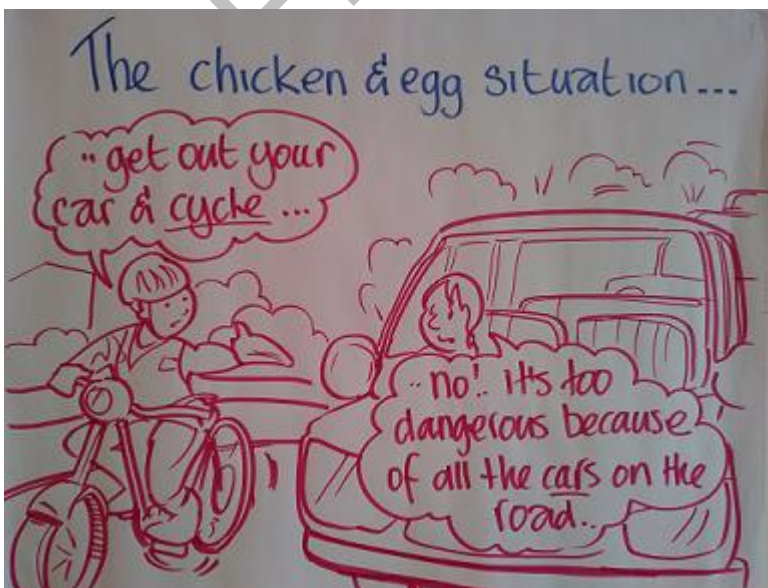 The chicken & egg situation...
.. get out your
car & cycle ...
.. no! it's too
dangerous because
of all the cars on the
road..